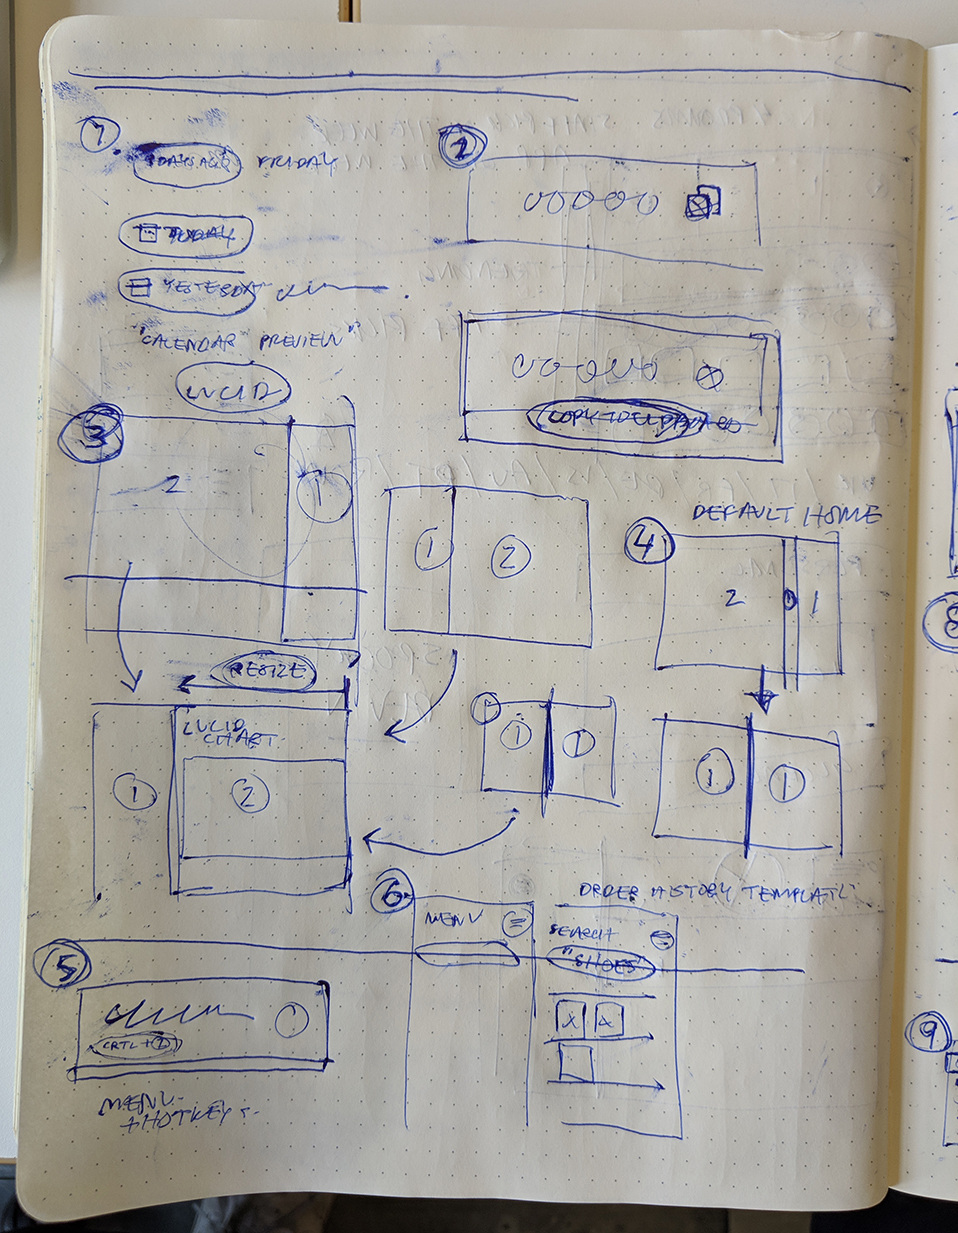 1.
FRIDAY
TODAY
YESTERDAY
"CALENDAR PREVIEW"
LUCID
2
COPY TO CLIPBOARD
3
2
1
1
2
RESIZE
LUCID
CHART
1
2
DEFAULT HOME
4
2
1
1
1
1
1
5
CRTL + 1
MENU
+ HOTKEY
6
MENU
ORDER HISTORY TEMPLATE
SEARCH
"SHOES"
8
9